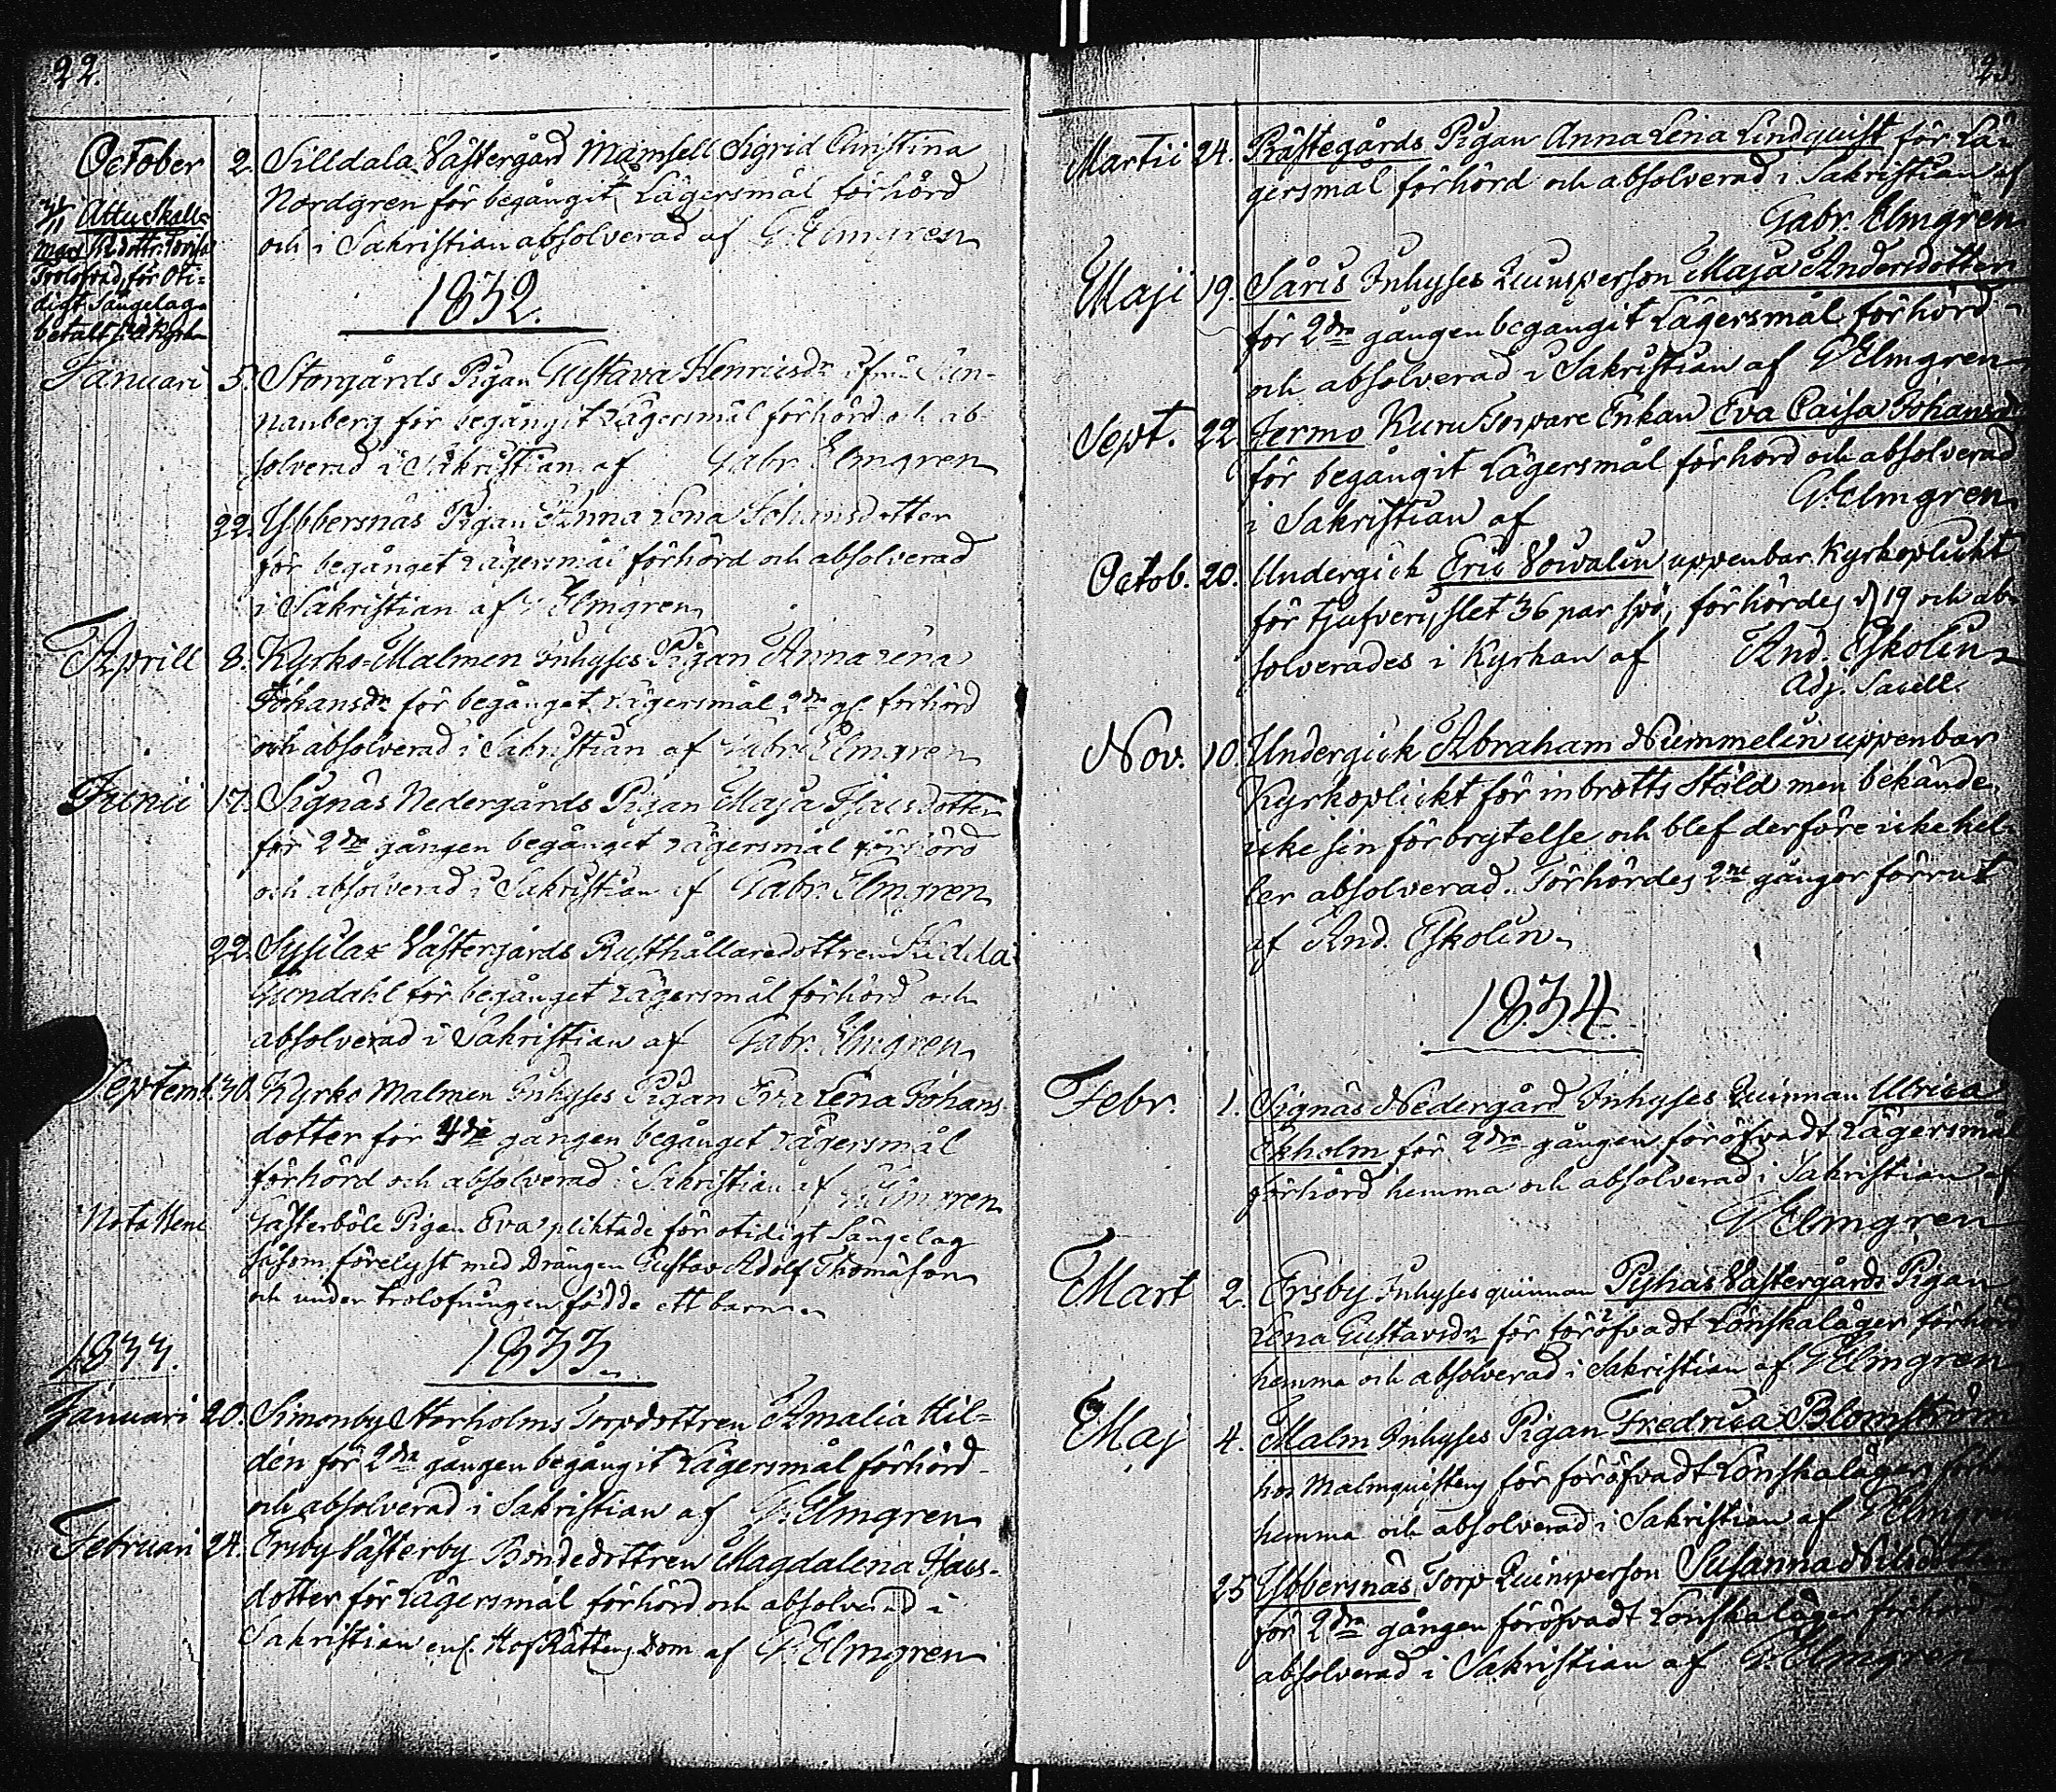 22.
October 2. Silldala Västergård Mamsell Sigrid Christina
Nordgren för begångit Lägersmål förhörd
och i Sakristian absolverad af G Elmgren
Attu Skall=
Trolofvad för Oti=
digt Sängelag
betalt
1832.
Januari 5. Storgårds Pigan Gustava Henricsdr ifrån Sun-
nanberg för begångit Lägersmål förhörd och ab-
solverad i Sakristian af Gabr. Elmgren
22. Ybbersnäs Pigan Anna Lena Johansdotter
för begånget Lägersmål förhörd och absolverad
i Sakristian af Elmgren
Aprill 8. Kyrko=Malmen Inhyses Pigan Anna Lena
Johansdr för begånget Lägersmål 2dra gg förhörd
och absolverad i Sakristian af Gabr. Elmgren
Junii 17. Signäs Nedergårds Pigan Maja Isacsdotter
för 2dra gången begånget Lägersmål förhörd
och absolverad i Sakristian af Gabr. Elmgren
22. Sysilax Västergårds Rusthållaredottren
Gundahl för begånget Lägersmål förhörd och
absolverad i Sakristian af Gabr. Elmgren
Septemb. 30. Kyrko Malmen Inhyses Pigan Eva Lena Johans
dotter för 4de gången begånget Lägersmål
förhörd och absolverad i Sakristian af Elmgren
Nota Bene Gästerböle Pigan Eva pliktade för otidigt Sängelag
såsom förelyst med Drängen Gustav Adolf Thomasson
och under trolofningen födde ett barn
1833. 1833.
Januari 20. Simonby Storholms Torpdottren Amalia Hil=
dén för 2dra gången begångit Lägersmål förhörd
och absolverad i Sakristian af G. Elmgren
Februari 24. Ersby Västerby Bondedottren Magdalena Isacs-
dotter för Lägersmål förhörd och absolverad i
Sakristian enl. HofRättens dom af G Elmgren
23.
Martii 24. Prästegårds Pigan Anna Lena Lindquist för Lä-
gersmål förhörd och absolverad i Sakristian af
Gabr. Elmgren
Maji 19. Såris Inhyses Quinsperson Maja Andersdotter
för 2dra gången begångit Lägersmål förhörd
och absolverad i Sakristian af G Elmgren
Sept. 22 Jermo Kuru Torpare Enkan Eva Caisa Johansdr
för begångit Lägersmål förhörd och absolverad
i Sakristian af G. Elmgren
Octob. 20. Undergick Eric Vowalin uppenbar Kyrkoplickt
för tjufveri, slet 36 par spö, förhördes d 19 och ab-
solverades i Kyrkan af And. Eskolin
Adj. Sacell.
Nov. 10. Undergick Abraham Nummelin uppenbar
Kyrkoplickt för inbrotts Stöld men bekände
icke sin förbrytelse och blef derföre icke hel-
ler absolverad. Förhördes 2ne gånger förrut
af And. Eskolin
1834.
Febr. 1. Signäs Nedergård Inhyses Quinnan Ulrica
Ekholm för 2dra gången föröfvadt Lägersmål
förhörd hemma och absolverad i Sakristian af
G Elmgren
Mart 2. Ersby Inhyses quinnan Pejnäs Västergårds Pigan
Lena Gustavsdr för föröfvadt Lönskaläger förhörd
hemma och absolverad i Sakristian af G Elmgren
Maj 4. Malm Inhyses Pigan Fredrica Blomström
hos Malmquistens för föröfvadt Lönskaläger förhörd
hemma och absolverad i Sakristian af G Elmgren
25 Ybbersnäs Torp Quinsperson Susanna Nilsdotter
för 2dra gången föröfvadt Lönskaläger förhörd
absolverad i Sakristian af G. Elmgren